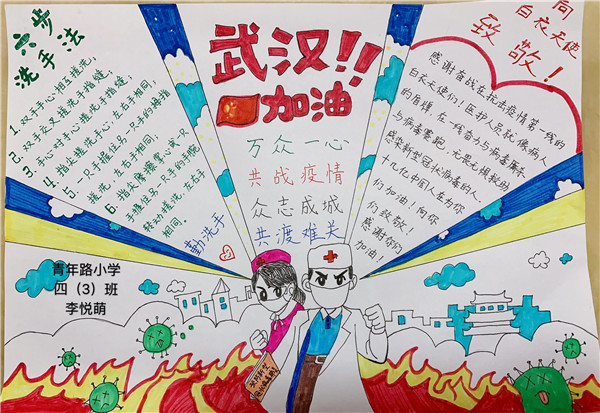 六步
洗手法
1. 双手手心相互搓洗。
2. 双手交叉搓洗手指缝。
3. 手心对手心搓洗手指缝,
4. 指尖搓洗手心,左右手相同。
5. 一只手握住另一只手的拇指
搓洗,左右手相同。
6. 指尖摩擦掌心或一只
手握住另一只手的手腕
转动搓洗,左右手
相同。
勤洗手
武汉!!
加油
万众一心
共战疫情
众志成城
共渡难关
向
白衣天使
致敬!
感谢奋战在抗击疫情第一线的
白衣天使们!医护人员就像病人
的盾牌,在一线奋力与病毒厮杀,
与病毒赛跑,无畏无惧救助
感染新型冠状病毒的人.
十几亿中国人在为你
们加油!向你
们致敬!
感谢你们
加油!
青年路小学
四(3)班
李悦萌